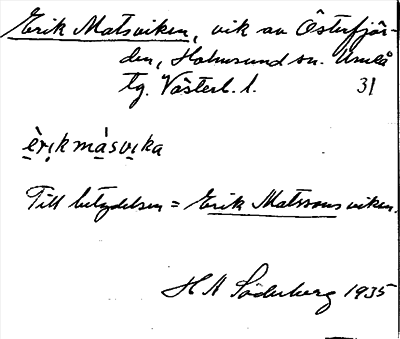 Erik Matsviken, vik av Österfjär-
den, Holmsund sn. Umeå
tg. Västerb. l. 31
èrikmásvika
Till betydelsen = Erik Matssons viken.
H A Söderberg 1935